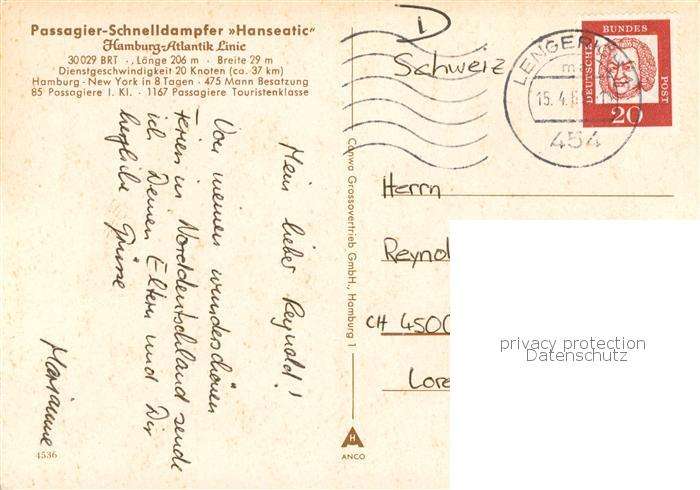 Passagier-Schnelldampfer »Hanseatic“
Hamburg-Atlantik Linie
30 029 BRT · Länge 206 m · Breite 29 m
Dienstgeschwindigkeit 20 Knoten (ca. 37 km)
Hamburg - New York in 8 Tagen · 475 Mann Besatzung
85 Passagiere I. Kl. · 1167 Passagiere Touristenklasse
Mein lieber Reynold!
Von meinen wunderschönen
Ferien in Norddeutschland sende
ich Deinen Eltern und Dir
herzliche Grüsse
Marianne
4536
Conwa Grossovertrieb GmbH., Hamburg 1
ANCO
D
Schweiz
LENGERICH
15. 4. 6
454
DEUTSCHE
BUNDES
POST
20
Herrn
Reynol
CH 4500
Lore
privacy protection
Datenschutz